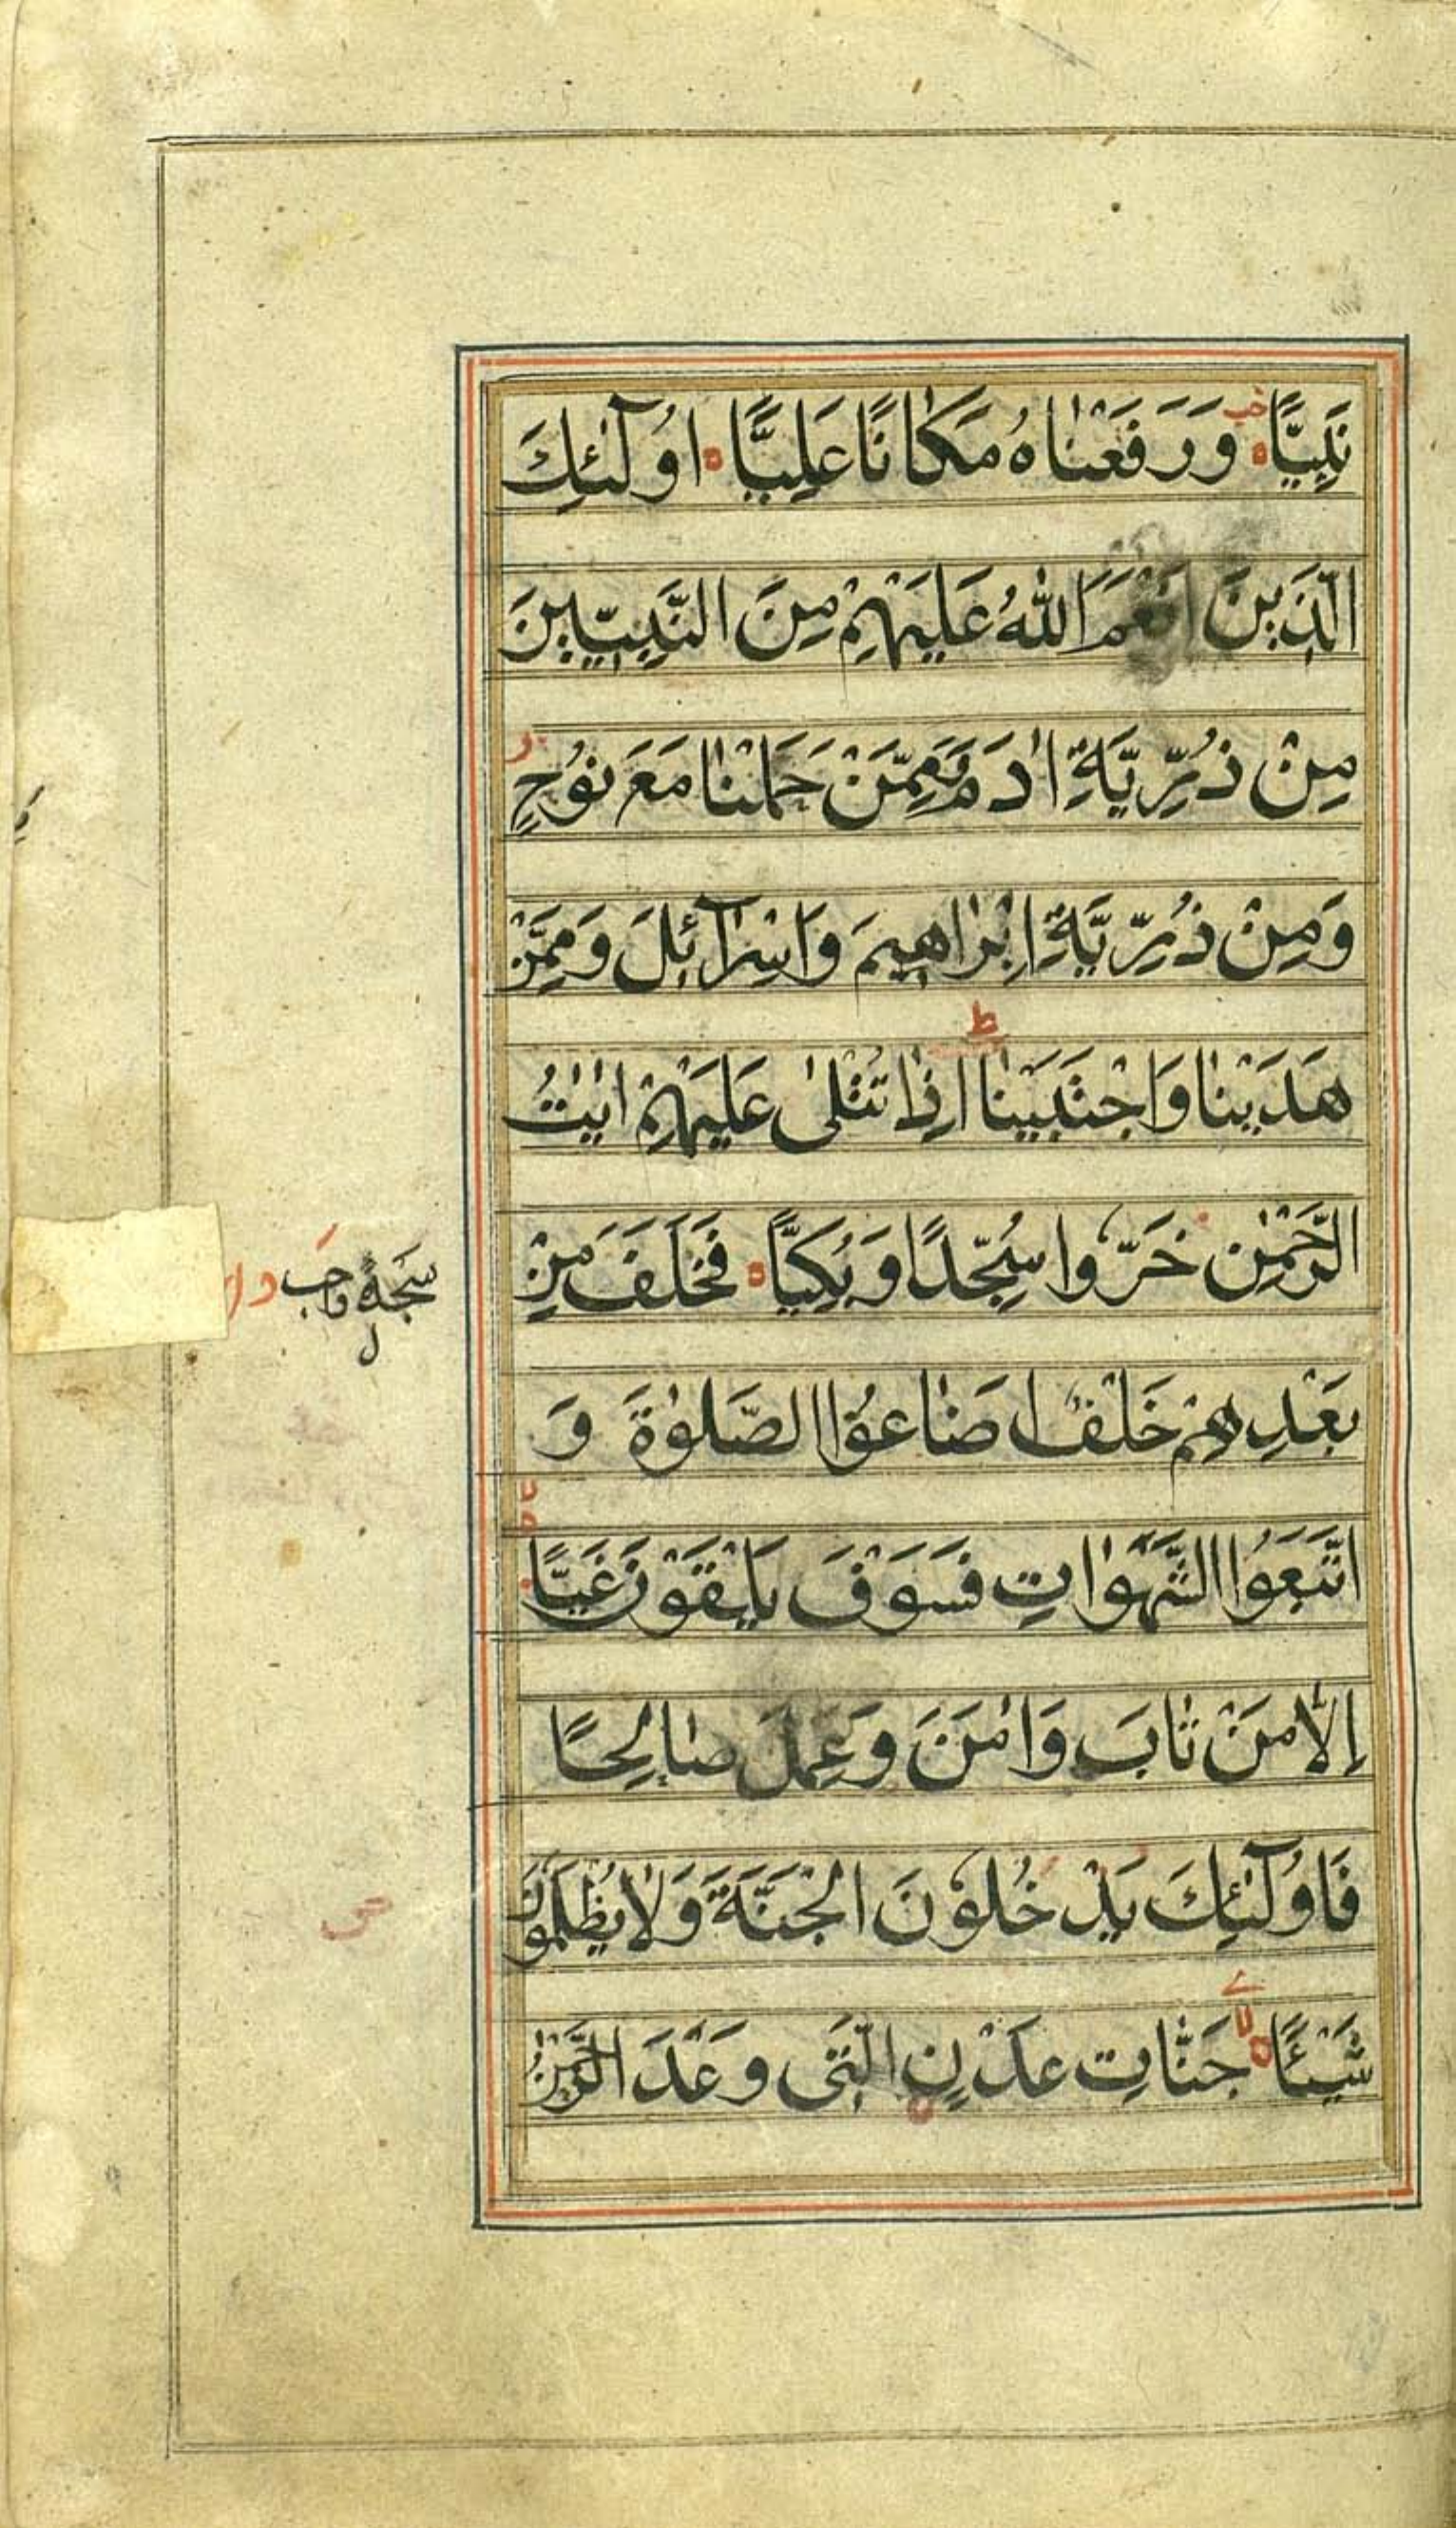 نَبِيًّا وَرَفَعْنَاهُ مَكَانًا عَلِيًّا اُولٓئِكَ
الَّذِينَ اَنْعَمَ اللهُ عَلَيْهِمْ مِنَ النَّبِيّيِنَ
مِنْ ذُرِّيَّةِ ادَمَ وَمِمَّنْ حَمَلْنَا مَعَ نُوْحٍ
وَمِنْ ذُرِّيَّةِ اِبْرَاهِيمَ وَاِسْرَآئِلَ وَمِمَّنْ
هَدَيْنَا وَاجْتَبَيْنَا اِذَا تُتْلٰى عَلَيْهِمْ اٰيٰتُ
الرَّحْمٰنِ خَرُّوا سُجَّدًا وَبُكِيًّا فَخَلَفَ مِنْ
سجدة واجب
بَعْدِهِمْ خَلْفٌ اَضَاعُوْا الصَّلٰوةَ وَ
اتَّبَعُوا الشَّهَوَاتِ فَسَوْفَ يَلْقَوْنَ غَيًّا
اِلَّا مَنْ تَابَ وَاٰمَنَ وَعَمِلَ صَالِحًا
فَاُولٓئِكَ يَدْخُلُوْنَ الْجَنَّةَ وَلَا يُظْلَمُونَ
شَيْئًا جَنَّاتِ عَدْنٍ الَّتِى وَعَدَ الرَّحْمٰنُ